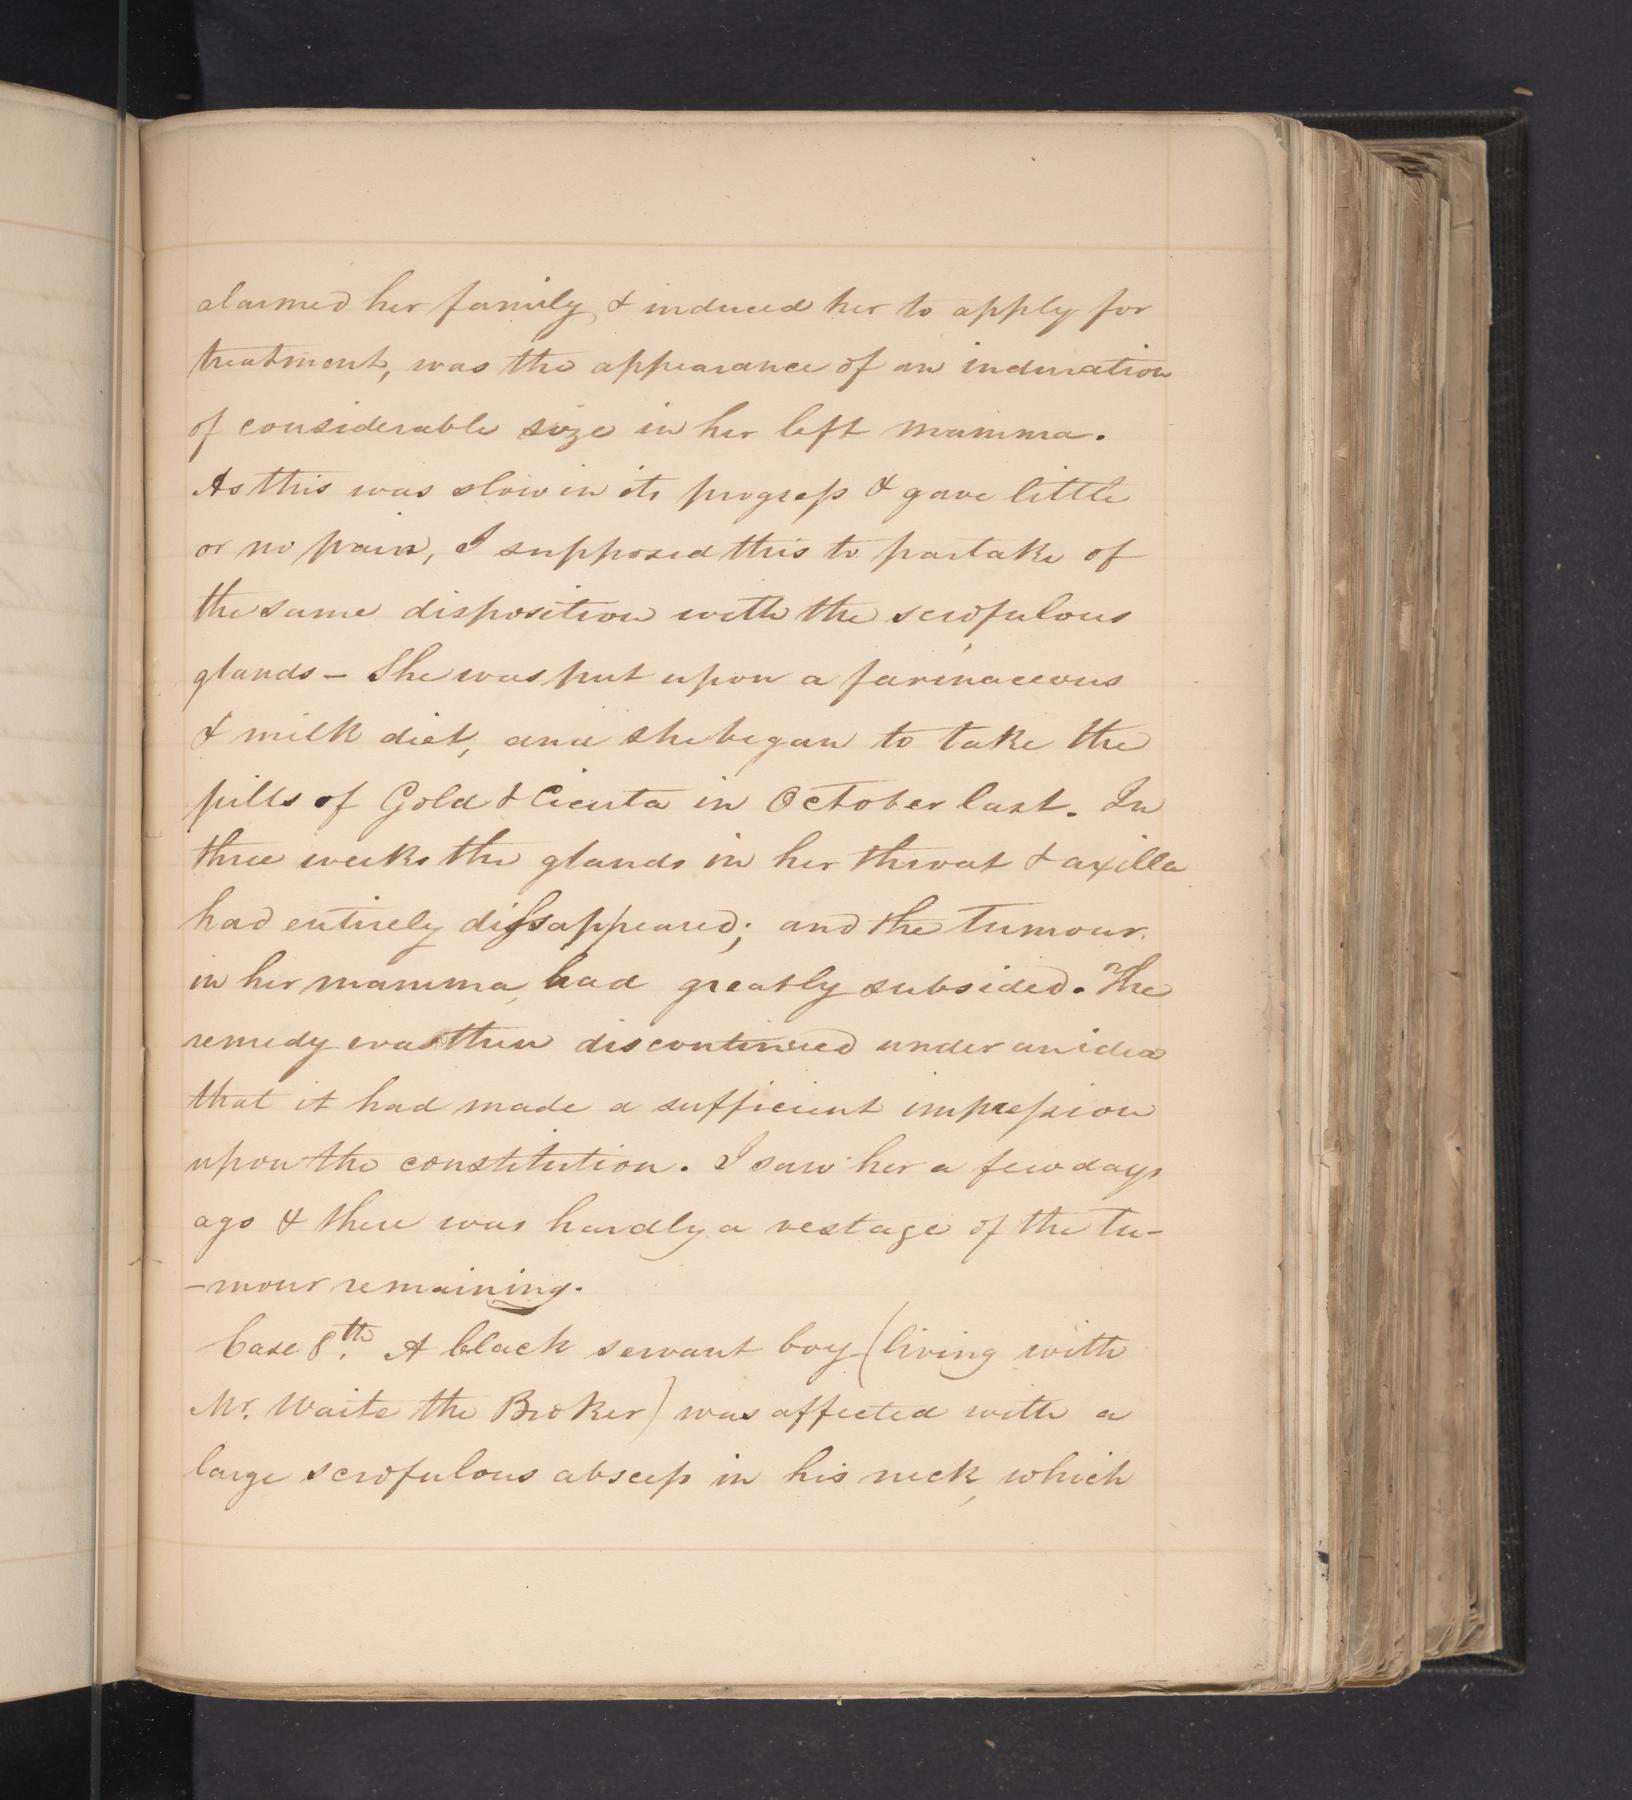 alarmed her family, & induced her to apply for
treatment, was the appearance of an induration
of considerable size in her left mamma.
As this was slow in its progress & gave little
or no pain, I supposed this to partake of
the same disposition with the scrofulous
glands – She was put upon a farinaceous
& milk diet, and she began to take the
pills of Gold & Cicuta in October last. In
three weeks the glands in her throat & axilla
had entirely dissappeared; and the tumour
in her mamma, had greatly subsided. The
remedy was then discontinued under an idea
that it had made a sufficient impression
upon the constitution. I saw her a few days
ago & there was hardly a vestage of the tu-
-mour remaining.
Case 8th. A black servant boy (living with
Mr. Waite the Broker) was affected with a
large scrofulous abscess in his neck, which